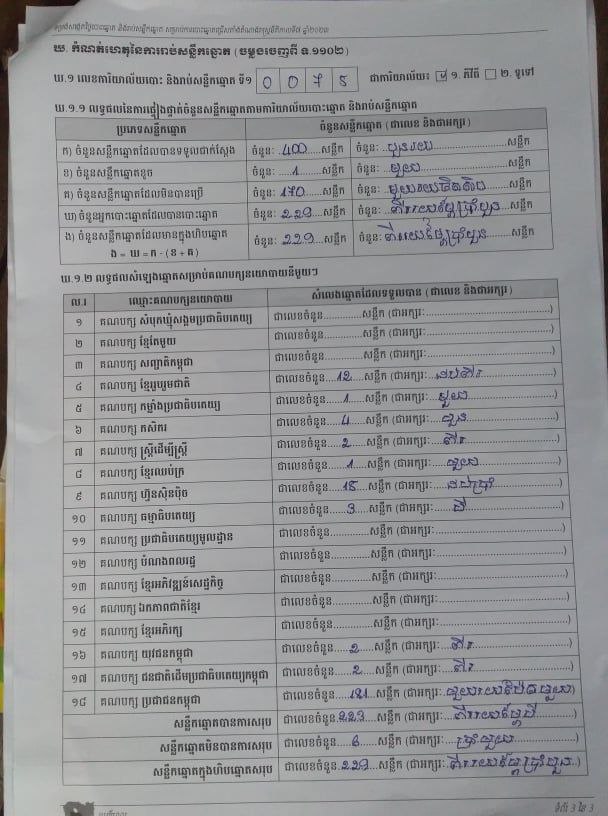 ឃ. កំណត់ហេតុនៃការរាប់សន្លឹកឆ្នោត (ចម្លងចេញពី ទ.១១០២)
ឃ.១ លេខការិយាល័យបោះ និងរាប់សន្លឹកឆ្នោត ទី១ 0 0 7 5 ជាការិយាល័យ៖ ☑ ១. ភីវីធី ☐ ២. ទូទៅ
ឃ.១.១ លទ្ធផលនៃការផ្ទៀងផ្ទាត់ចំនួនសន្លឹកឆ្នោតតាមការិយាល័យបោះឆ្នោត និងរាប់សន្លឹកឆ្នោត
ប្រភេទសន្លឹកឆ្នោត ចំនួនសន្លឹកឆ្នោត (ជាលេខ និងជាអក្សរ)
ក) ចំនួនសន្លឹកឆ្នោតដែលបានទទួលជាក់ស្តែង ចំនួន: 400 សន្លឹក ចំនួន: បួនរយ សន្លឹក
ខ) ចំនួនសន្លឹកឆ្នោតខូច ចំនួន: 1 សន្លឹក ចំនួន: មួយ សន្លឹក
គ) ចំនួនសន្លឹកឆ្នោតដែលមិនបានប្រើ ចំនួន: 170 សន្លឹក ចំនួន: មួយរយចិតសិប សន្លឹក
ឃ) ចំនួនអ្នកបោះឆ្នោតដែលបានបោះឆ្នោត ចំនួន: 229 សន្លឹក ចំនួន: ពីររយម្ភៃប្រាំបួន សន្លឹក
ង) ចំនួនសន្លឹកឆ្នោតដែលមានក្នុងហិបឆ្នោត ចំនួន: 229 សន្លឹក ចំនួន: ពីររយម្ភៃប្រាំបួន សន្លឹក
ង = ឃ = ក - (ខ + គ)
ឃ.១.២ លទ្ធផលសំឡេងឆ្នោតសម្រាប់គណបក្សនយោបាយនីមួយៗ
ល.រ ឈ្មោះគណបក្សនយោបាយ សំលេងឆ្នោតដែលទទួលបាន (ជាលេខ និងជាអក្សរ)
១ គណបក្ស សំបុកឃ្មុំសង្គមប្រជាធិបតេយ្យ ជាលេខចំនួន............សន្លឹក (ជាអក្សរ:............)
២ គណបក្ស ខ្មែរតែមួយ ជាលេខចំនួន............សន្លឹក (ជាអក្សរ:............)
៣ គណបក្ស សញ្ជាតិកម្ពុជា ជាលេខចំនួន............សន្លឹក (ជាអក្សរ:............)
៤ គណបក្ស ខ្មែររួបរួមជាតិ ជាលេខចំនួន 12 សន្លឹក (ជាអក្សរ: ដប់ពីរ)
៥ គណបក្ស កម្លាំងប្រជាធិបតេយ្យ ជាលេខចំនួន 1 សន្លឹក (ជាអក្សរ: មួយ)
៦ គណបក្ស កសិករ ជាលេខចំនួន 4 សន្លឹក (ជាអក្សរ: បួន)
៧ គណបក្ស ស្ត្រីដើម្បីស្ត្រី ជាលេខចំនួន 2 សន្លឹក (ជាអក្សរ: ពីរ)
៨ គណបក្ស ខ្មែរឈប់ក្រ ជាលេខចំនួន 1 សន្លឹក (ជាអក្សរ: មួយ)
៩ គណបក្ស ហ៊្វុនស៊ិនប៉ិច ជាលេខចំនួន 15 សន្លឹក (ជាអក្សរ: ដប់ប្រាំ)
១០ គណបក្ស ធម្មាធិបតេយ្យ ជាលេខចំនួន 3 សន្លឹក (ជាអក្សរ: បី)
១១ គណបក្ស ប្រជាធិបតេយ្យមូលដ្ឋាន ជាលេខចំនួន............សន្លឹក (ជាអក្សរ:............)
១២ គណបក្ស បំណងពលរដ្ឋ ជាលេខចំនួន............សន្លឹក (ជាអក្សរ:............)
១៣ គណបក្ស ខ្មែរអភិវឌ្ឍន៍សេដ្ឋកិច្ច ជាលេខចំនួន............សន្លឹក (ជាអក្សរ:............)
១៤ គណបក្ស ឯកភាពជាតិខ្មែរ ជាលេខចំនួន............សន្លឹក (ជាអក្សរ:............)
១៥ គណបក្ស ខ្មែរអភិរក្ស ជាលេខចំនួន............សន្លឹក (ជាអក្សរ:............)
១៦ គណបក្ស យុវជនកម្ពុជា ជាលេខចំនួន 2 សន្លឹក (ជាអក្សរ: ពីរ)
១៧ គណបក្ស ជនជាតិដើមប្រជាធិបតេយ្យកម្ពុជា ជាលេខចំនួន 2 សន្លឹក (ជាអក្សរ: ពីរ)
១៨ គណបក្ស ប្រជាជនកម្ពុជា ជាលេខចំនួន 181 សន្លឹក (ជាអក្សរ: មួយរយប៉ែតមួយ)
សន្លឹកឆ្នោតបានការសរុប ជាលេខចំនួន 223 សន្លឹក (ជាអក្សរ: ពីររយម្ភៃបី)
សន្លឹកឆ្នោតមិនបានការសរុប ជាលេខចំនួន 6 សន្លឹក (ជាអក្សរ: ប្រាំមួយ)
សន្លឹកឆ្នោតក្នុងហិបឆ្នោតសរុប ជាលេខចំនួន 229 សន្លឹក (ជាអក្សរ: ពីររយម្ភៃប្រាំបួន)
ទំព័រ 3 នៃ 3